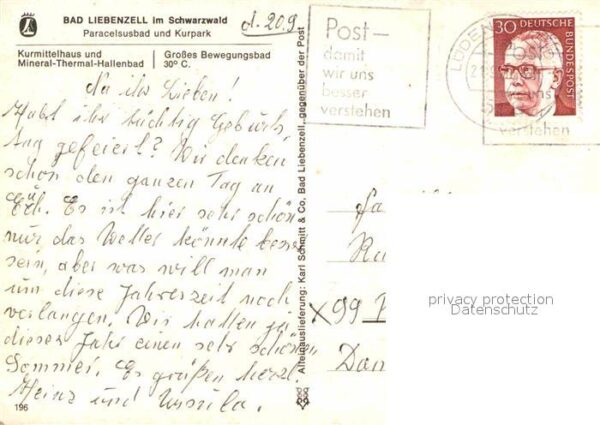 BAD LIEBENZELL im Schwarzwald
Paracelsusbad und Kurpark
d. 20.9.
Kurmittelhaus und
Mineral-Thermal-Hallenbad
Großes Bewegungsbad
30° C.
Na ihr Lieben!
Habt ihr tüchtig Geburts
tag gefeiert? Wir denken
schon den ganzen Tag an
Euch. Es ist hier sehr schön
nur das Wetter könnte besser
sein, aber was will man
um diese Jahreszeit noch
verlangen. Wir hatten ja
dieses Jahr einen sehr schönen
Sommer. Es grüßen herzl.
Heinz und Ursula.
196
Alleinauslieferung: Karl Schmitt & Co. Bad Liebenzell, gegenüber der Post
Post-
damit
wir uns
besser
verstehen
LÜDEN
30 DEUTSCHE
BUNDESPOST
verstehen
Fa
X99
Dan
privacy protection
Datenschutz